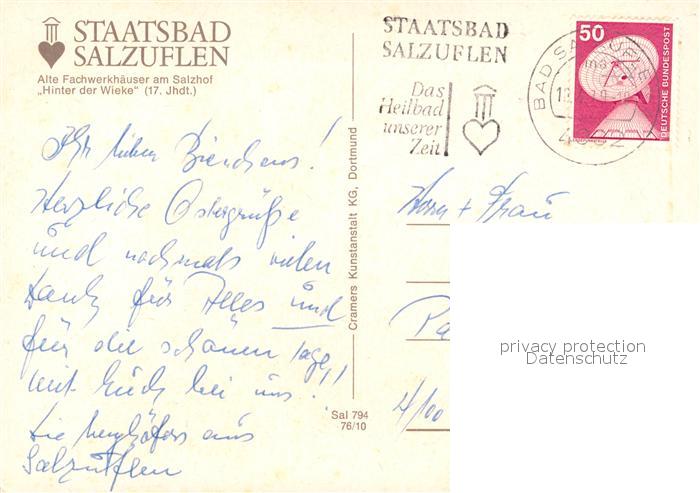 STAATSBAD
SALZUFLEN
Alte Fachwerkhäuser am Salzhof
„Hinter der Wieke" (17. Jhdt.)
STAATSBAD
SALZUFLEN
Das
Heilbad
unserer
Zeit
BAD SALZUFLEN
50
DEUTSCHE BUNDESPOST
Ihr lieben
Herzliche Ostergrüße
und nochmals vielen
Dank für Alles und
für die schönen Tage!!
mit Euch bei uns!
Die aus
Salzuflen
Cramers Kunstanstalt KG, Dortmund
Sal 794
76/10
Herrn + Frau
privacy protection
Datenschutz